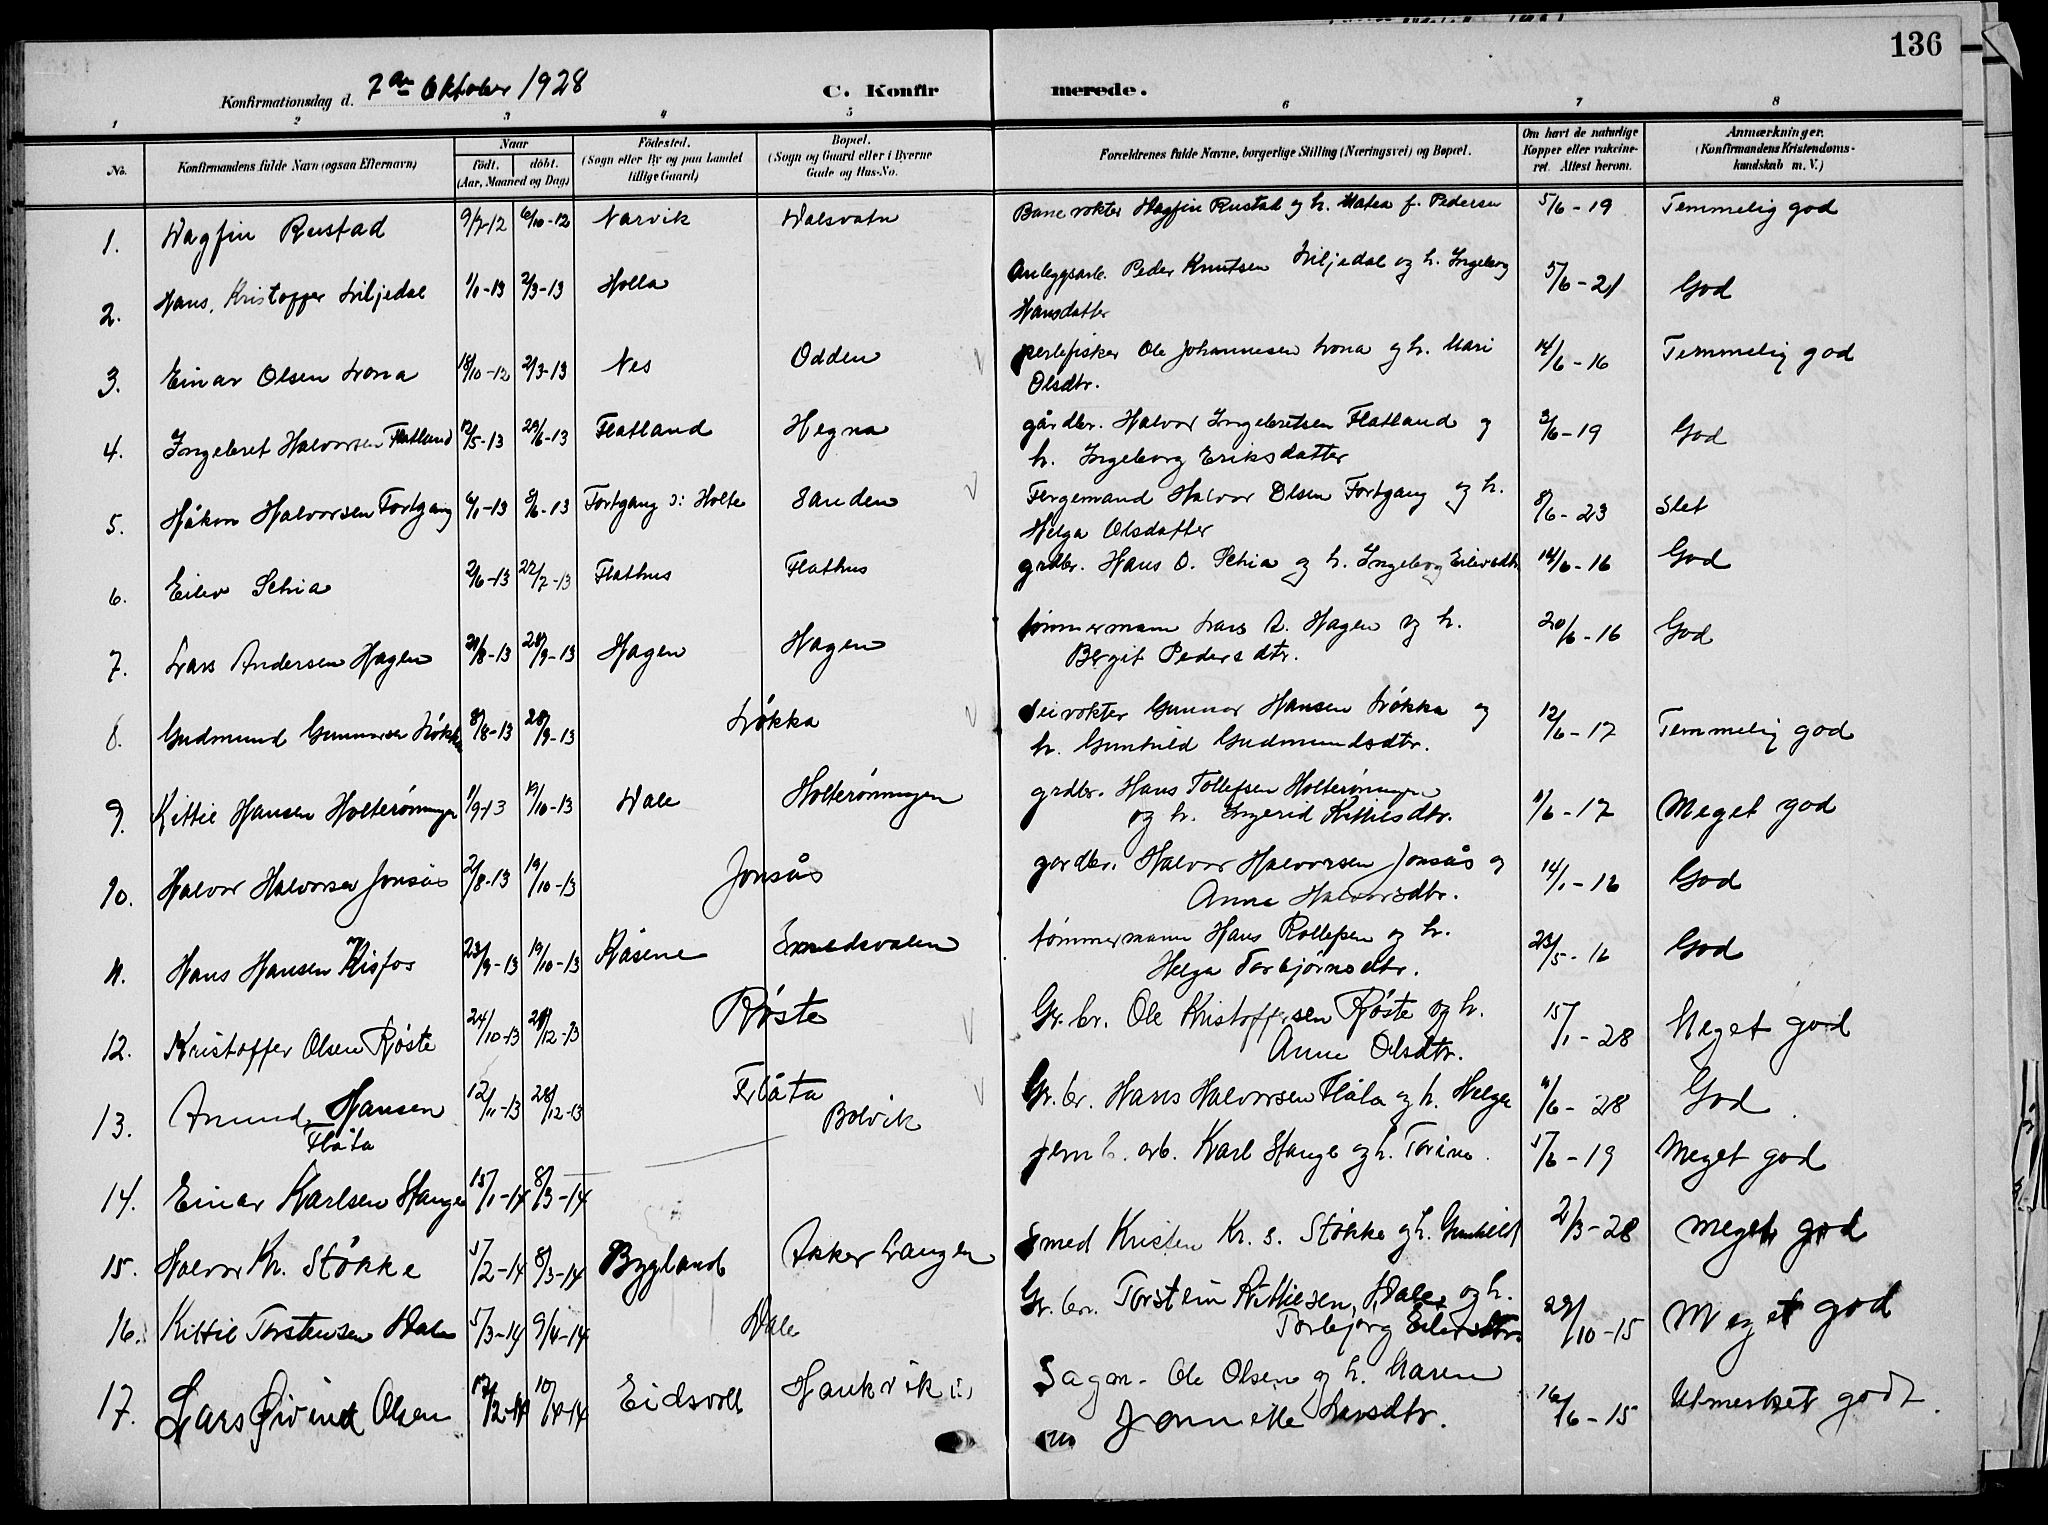 136
Konfirmationsdag d. 7de Oktober 1928 C. Konfirmerede.
1 2 3 4 5 6 7 8
No. Konfirmandens fulde Navn (ogsaa Efternavn) Naar födt. döbt. (Aar, Maaned og Dag) Födested. (Sogn eller By og paa Landet tillige Gaard) Bopæl. (Sogn og Gaard eller i Byerne Gade og Hus-No. Forældrenes fulde Navne, borgerlige Stilling (Næringsvei) og Bopæl. Om havt de naturlige Kopper eller vakcineret. Attest herom. Anmærkninger. (Konfirmandens Kristendomskundskab m. V.)
1. Dagfin Rustad 9/7-12 6/10-12 Narvik Dalsvatn Banevokter Hagfin Rustad og h. f. Pedersen 5/6-19 Temmelig god
2. Hans Kristoffer Liljedal 1/1-13 2/3-13 Holla Anleggsarb. Peder Knutsen Liljedal og h. Ingeborg 5/6-21 God
Hansdatter
3. Einar Olsen Lona 18/10-12 2/3-13 Nes Odden perlefisker Ole Johannesen Lona og h. Mari 14/6-16 Temmelig god
Olsdtr.
4. Ingebret Halvorsen Flatland 12/5-13 29/6-13 Flatland Hegna gårdbr. Halvor Ingebretsen Flatland og 3/6-19 God
h. Ingeborg Eriksdatter
5. Håkon Halvorsen Fortgang 6/1-13 8/6-13 Fortgang i: Holte Sanden Fergemand Halvor Olsen Fortgang og h. 8/6-23 Slet
Helga Olsdatter
6. Eilev Setria 2/6-13 22/7-13 Flathus Flathus grdbr. Hans O. Setria og h. Ingeborg Eilevsdtr 14/6-16 God
7. Lars Andersen Hagen 21/8-13 28/9-13 Hagen Hagen tømmermann Lars A. Hagen og h. 20/6-16 God
Bergit Pedersdtr.
8. Gudmund Gunnarsen Løkka 8/8-13 28/9-13 Løkka Veivokter Gunnar Hansen Løkka og 12/6-17 Temmelig god
h. Gunhild Gudmundsdtr.
9. Kittil Hansen Holterønningen 1/9-13 19/10-13 Dale Holterønningen grdbr. Hans Tollefsen Holterønningen 11/6-17 Meget god
og h. Ingerid Kittilsdtr.
10. Halvor Halvorsen Jonsås 2/8-13 19/10-13 Jonsås gardbr. Halvor Halvorsen Jonsås og 14/1-16 God
Anne Halvorsdtr.
11. Hans Hansen Kisfos 23/9-13 19/10-13 Råsene Smedsvalen tømmermann Hans Rollefsen og h. 23/5-16 God
Helga Torbjørnsdtr.
12. Kristoffer Olsen Røste 24/10-13 28/12-13 Røste Gr. br. Ole Kristoffersen Røste og h. 15/1-28 Meget god
Anne Olsdtr.
13. Amund Hansen 12/11-13 28/12-13 Flåta Gr. br. Hans Halvorsen Flåta og h. Helga 4/6-28 God
Flåta
14. Einar Karlsen Hauge 15/1-14 8/3-14 Bolvik jernb. arb. Karl Hauge og h. Torine 5/6-19 Meget god
15. Halvor Kr. Stökke 5/2-14 8/3-14 Bygland Akker Langen Smed Kristen Kr. s. Stökke og h. Gunhild 2/3-28 meget god
16. Kittil Torstensen Dale 5/3-14 9/4-14 Dale Gr. br. Torstein Kittilsen, Dale, og h. 29/10-15 Meget god
Torbjorg Eilevsdtr.
17. Lars Øivind Olsen 17/2-14 10/4-14 Eidsvoll Haukvik Sagm. Ole Olsen og h. Maren 16/6-15 Utmerket godt.
Jannette Larsdtr.